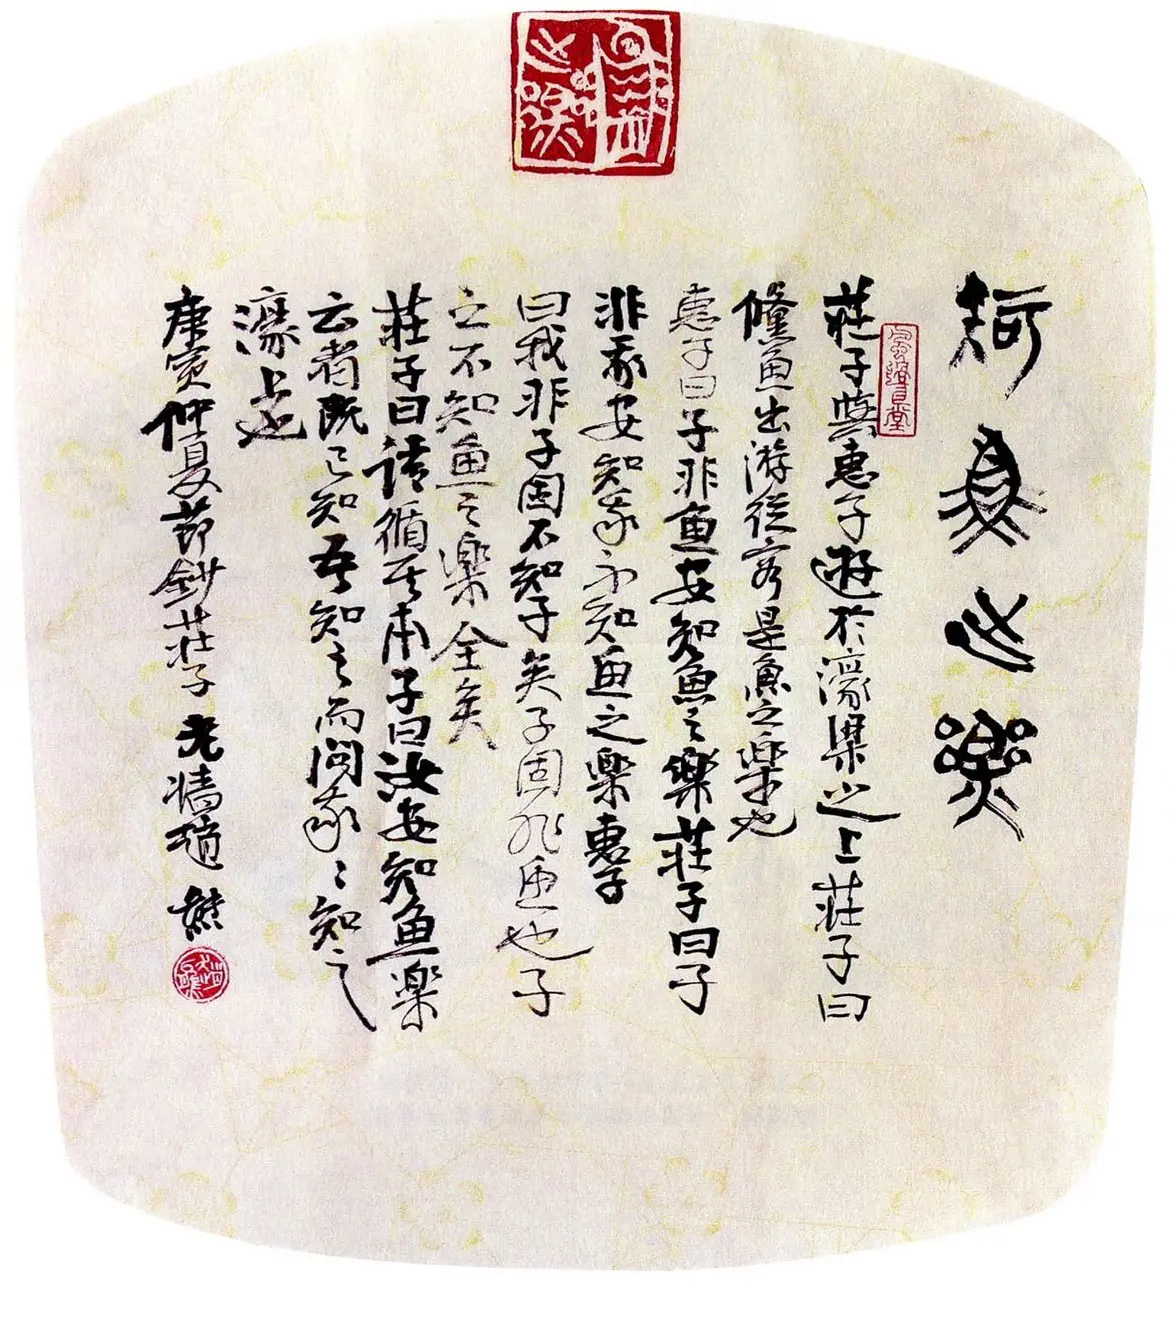 知魚之樂
莊子與惠子遊於濠梁之上莊子曰
儵魚出游從容是魚之樂也
惠子曰子非魚安知魚之樂莊子曰子
非我安知我不知魚之樂惠子
曰我非子固不知子矣子固非魚也子
之不知魚之樂全矣
莊子曰請循其本子曰汝安知魚樂
云者既已知吾知之而問我〻知之
濠上也
庚寅仲夏節鈔莊子